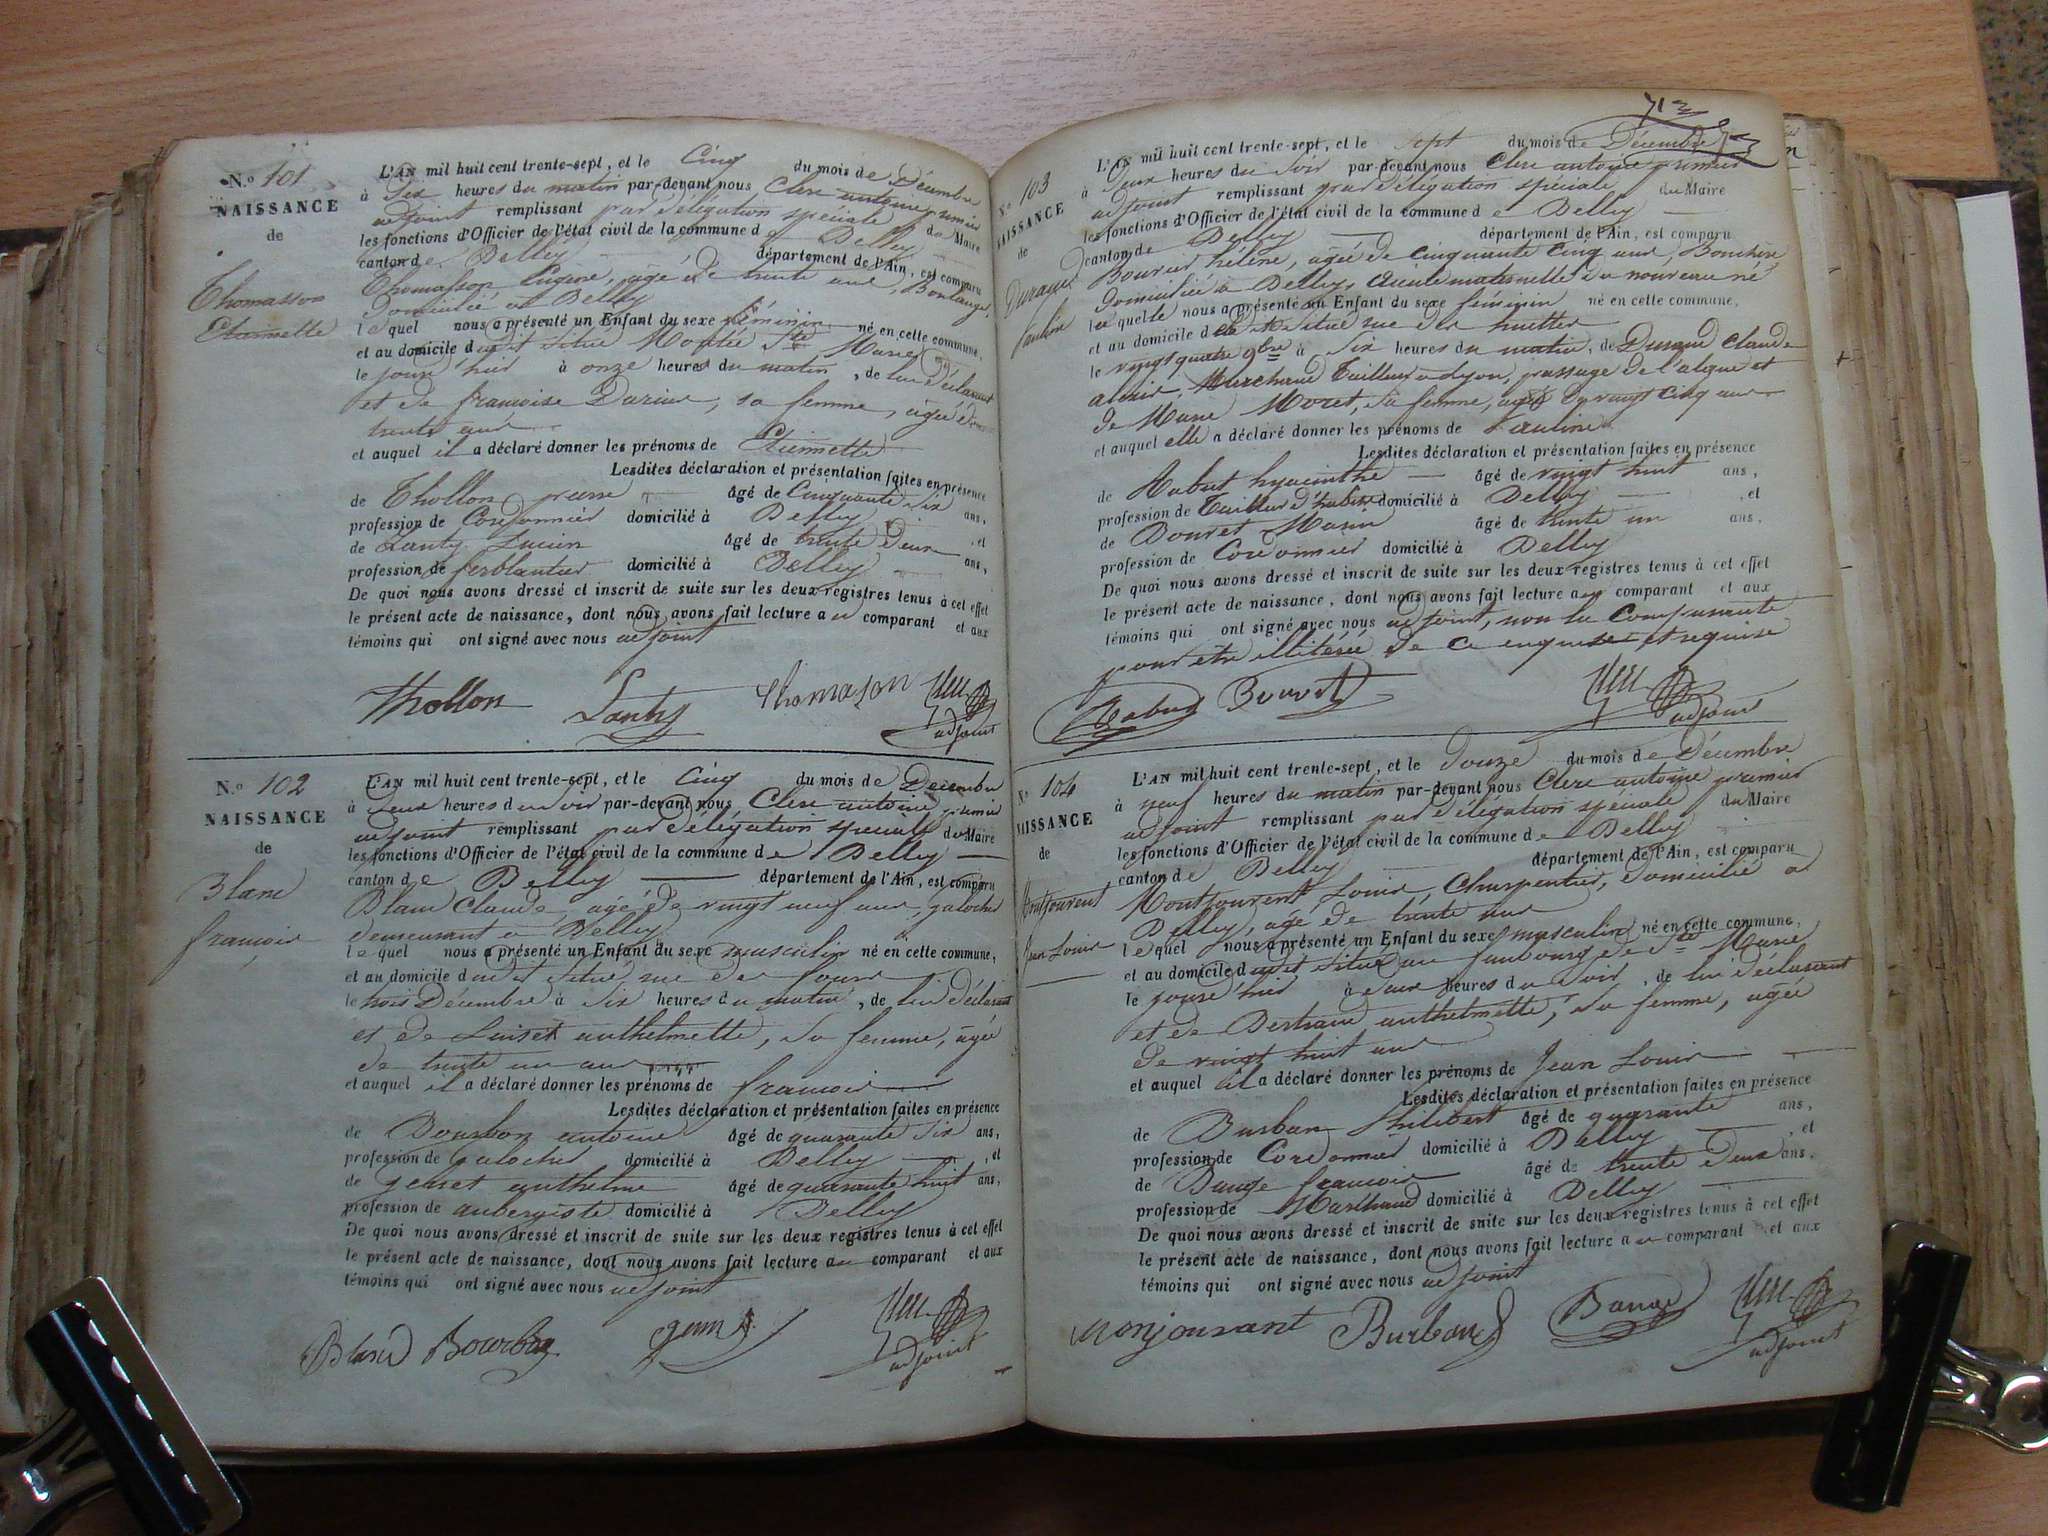 N.o 101
NAISSANCE
de
Thomasson
Etiennette
L'AN mil huit cent trente-sept, et le Cinq du mois de Décembre
à Dix heures du matin par-devant nous Clerc antoine premier
adjoint remplissant par délégation speciale du Maire
les fonctions d'Officier de l'état civil de la commune de Belley
canton de Belley département de l'Ain, est comparu
Thomasson Eugène, agé de trente ans, Boulanger,
Domicilié à Belley
lequel nous a présenté un Enfant du sexe féminin né en cette commune,
et au domicile dudit situé Montée Ste Marie
le jour d'hier à onze heures du matin, de lui déclarant
et de françoise Darieux, sa femme, agée de
trente ans
et auquel il a déclaré donner les prénoms de Etiennette
Lesdites déclaration et présentation faites en présence
de Thollon pierre âgé de Cinquante six ans,
profession de Cordonnier domicilié à Belley, et
de Lanty Lucien âgé de trente deux ans,
profession de ferblantier domicilié à Belley
De quoi nous avons dressé et inscrit de suite sur les deux registres tenus à cet effet
le présent acte de naissance, dont nous avons fait lecture au comparant et aux
témoins qui ont signé avec nous adjoint
Thollon Lanty Thomason Clerc
adjoint
N.o 102
NAISSANCE
de
Blanc
françois
L'AN mil huit cent trente-sept, et le Cinq du mois de Décembre
à deux heures du soir par-devant nous Clerc antoine premier
adjoint remplissant par délégation speciale du Maire
les fonctions d'Officier de l'état civil de la commune de Belley
canton de Belley département de l'Ain, est comparu
Blanc Claude, agé de vingt neuf ans, galocher
demeurant à Belley
lequel nous a présenté un Enfant du sexe masculin né en cette commune,
et au domicile dudit situé rue des fours
le trois Décembre à Six heures du matin, de lui déclarant
et de Luiset anthelmette, sa femme, agée
de trente un ans
et auquel il a déclaré donner les prénoms de françois
Lesdites déclaration et présentation faites en présence
de Bourbon antoine âgé de quarante six ans,
profession de galocher domicilié à Belley, et
de genet anthelme âgé de quarante huit ans,
profession de aubergiste domicilié à Belley
De quoi nous avons dressé et inscrit de suite sur les deux registres tenus à cet effet
le présent acte de naissance, dont nous avons fait lecture au comparant et aux
témoins qui ont signé avec nous adjoint
Blanc Bourbon genet Clerc
adjoint
N.o 103
NAISSANCE
de
Durand
Pauline
L'AN mil huit cent trente-sept, et le sept du mois de Décembre
à deux heures du soir par-devant nous Clerc antoine premier
adjoint remplissant par délégation speciale du Maire
les fonctions d'Officier de l'état civil de la commune de Belley
canton de Belley département de l'Ain, est comparu
hélène, agée de Cinquante Cinq ans, Bouchère,
domiciliée à Belley, aieule maternelle du nouveau né
laquelle nous a présenté un Enfant du sexe féminin né en cette commune,
et au domicile situé rue des
le vingt quatre 9bre à Six heures du matin, de Durand Claude
Marchand Tailleur à Lyon, passage de l'algue et
de Marie Moret, sa femme, agée de vingt Cinq ans
et auquel elle a déclaré donner les prénoms de Pauline
Lesdites déclaration et présentation faites en présence
de Rabut hyacinthe âgé de vingt huit ans,
profession de Tailleur d'habits domicilié à Belley, et
de Bouvet Marin âgé de trente un ans,
profession de Cordonnier domicilié à Belley
De quoi nous avons dressé et inscrit de suite sur les deux registres tenus à cet effet
le présent acte de naissance, dont nous avons fait lecture au comparant et aux
témoins qui ont signé avec nous adjoint, non la Comparante
pour être illitérée de ce enquise et requise
Rabut Bouvet Clerc
adjoint
N.o 104
NAISSANCE
de
Montjouvent
Jean Louis
L'AN mil huit cent trente-sept, et le Douze du mois de Décembre
à neuf heures du matin par-devant nous Clerc antoine premier
adjoint remplissant par délégation speciale du Maire
les fonctions d'Officier de l'état civil de la commune de Belley
canton de Belley département de l'Ain, est comparu
Montjouvent Louis, Charpentier, domicilié à
Belley, agé de trente ans
lequel nous a présenté un Enfant du sexe masculin né en cette commune,
et au domicile dudit situé au faubourg de Ste Marie
le jour d'hier à deux heures du soir, de lui déclarant
et de Bertrand anthelmette, sa femme, agée
de vingt huit ans
et auquel il a déclaré donner les prénoms de Jean Louis
Lesdites déclaration et présentation faites en présence
de Burban Philibert âgé de quarante ans,
profession de Cordonnier domicilié à Belley, et
de Bauge françois âgé de trente deux ans,
profession de Marchand domicilié à Belley
De quoi nous avons dressé et inscrit de suite sur les deux registres tenus à cet effet
le présent acte de naissance, dont nous avons fait lecture au comparant et aux
témoins qui ont signé avec nous adjoint
Monjouvant Burban Bauge Clerc
adjoint